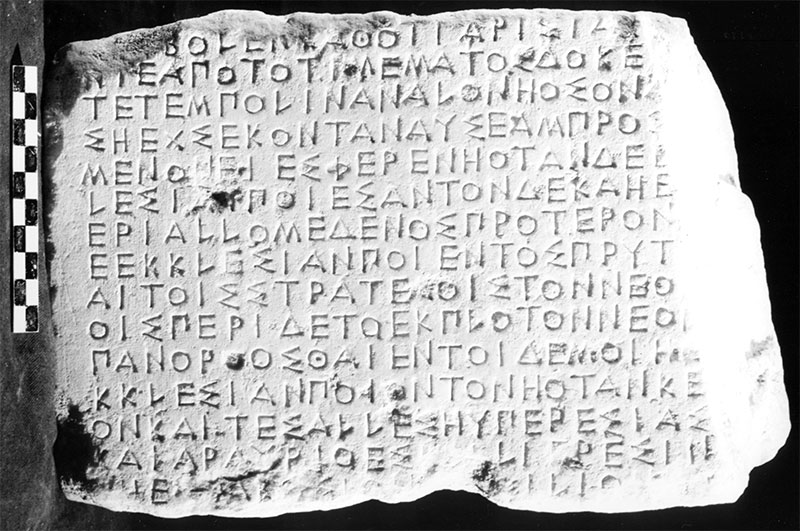 ΒΟΛΕΝΚΑΘΟΤΙΑΡΙΣΤΑ
ΙΤΕΑΠΟΤΟΤΙΜΕΜΑΤΟΣΔΟΚΕ
ΤΕΤΕΜΠΟΛΙΝΑΝΑΛΟΝΗΟΣΟΝ
ΣΗΕΧΣΕΚΟΝΤΑΝΑΥΣΕΑΜΠΡΟΣ
ΜΕΝΟΙΕΙΕΣΦΕΡΕΝΗΟΤΑΝΔΕΕ
ΛΕΣΙΑΝΠΟΙΕΣΑΝΤΟΝΔΕΚΑΗΕ
ΕΡΙΑΛΛΟΜΕΔΕΝΟΣΠΡΟΤΕΡΟΝ
ΕΕΚΚΛΕΣΙΑΝΠΟΙΕΝΤΟΣΠΡΥΤ
ΑΙΤΟΙΣΣΤΡΑΤΕΓΟΙΣΤΟΝΝΕΟ
ΟΙΣΠΕΡΙΔΕΤΟΕΚΠΛΟΤΟΝΝΕΟ
ΠΑΝΟΡΘΟΣΘΑΙΕΝΤΟΙΔΕΜΟΙΗ
ΚΚΛΕΣΙΑΝΠΟΙΟΝΤΟΝΗΟΤΑΝΚΕ
ΟΝΚΑΙΤΕΣΑΛΛΕΣΗΥΠΕΡΕΣΙΑΣ
ΚΑΙΑΡΑΥΡΙΟΕΣ